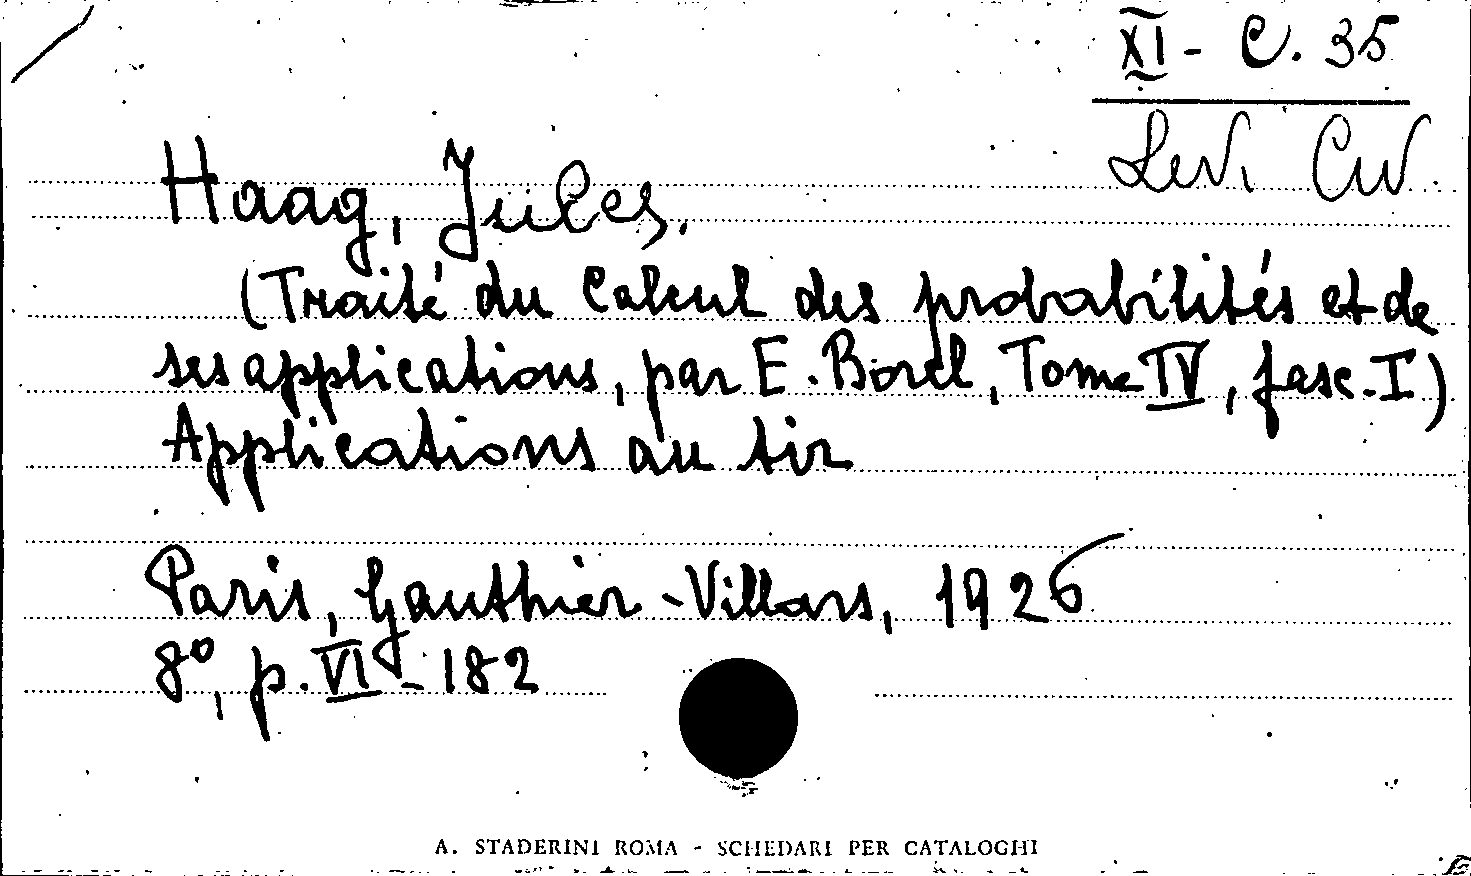 XI - C. 35
Levi Civ.
Haag, Jules.
(Traité du Calcul des probabilités et de
ses applications, par E. Borel, Tome IV, fasc. I)
Applications au tir
Paris, Gauthier-Villars, 1926
8°, p. VI - 182
A. STADERINI ROMA - SCHEDARI PER CATALOGHI